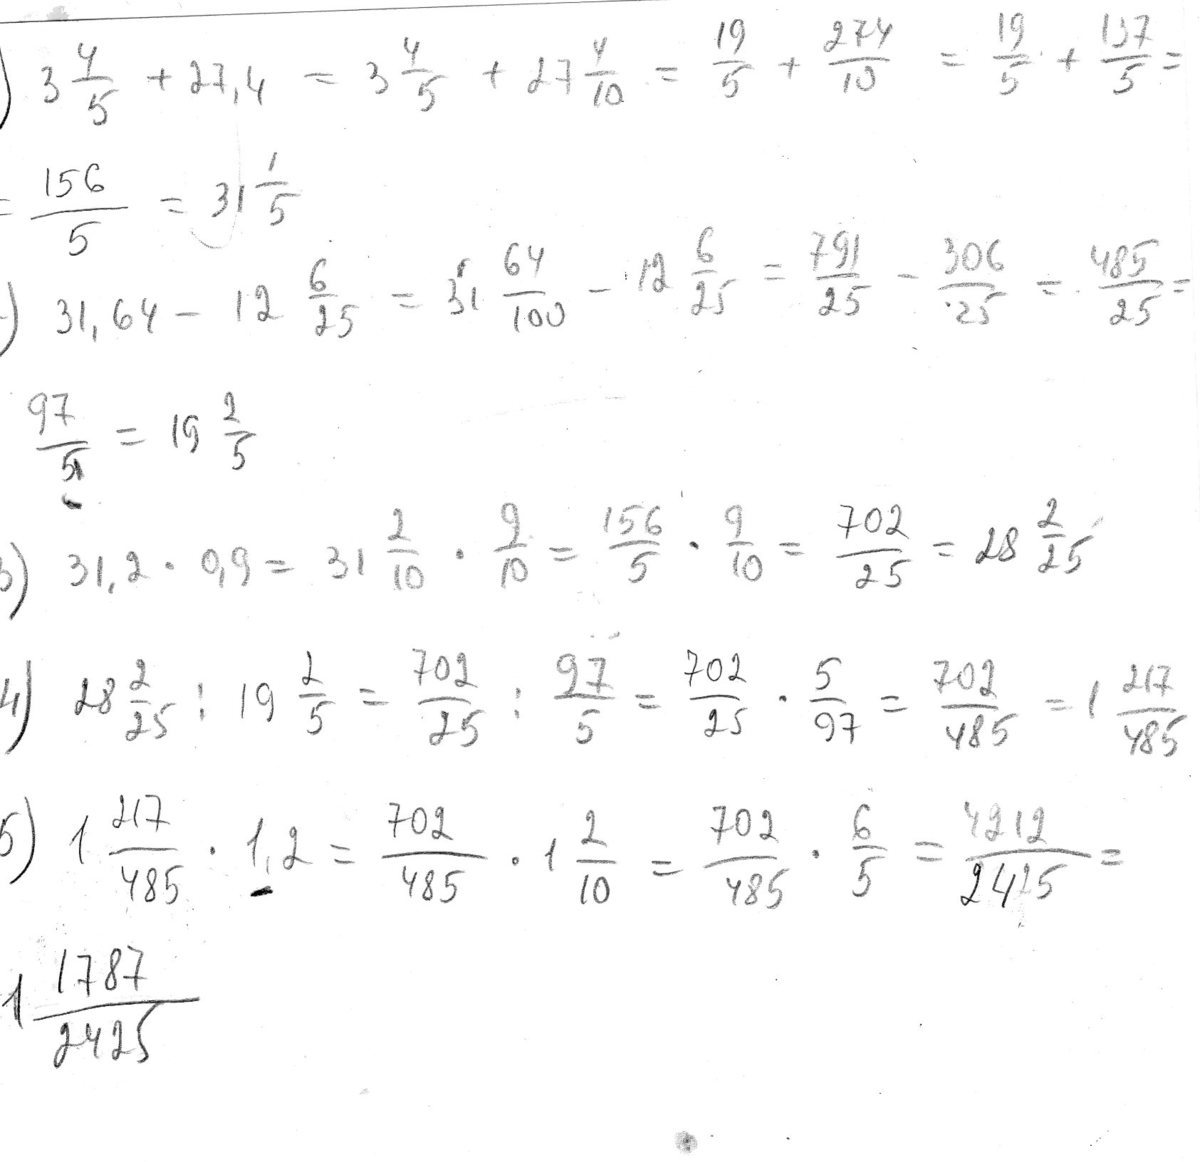 ) 3 4/5 + 27,4 = 3 4/5 + 27 4/10 = 19/5 + 274/10 = 19/5 + 137/5 =
= 156/5 = 31 1/5
) 31,64 - 12 6/25 = 31 64/100 - 12 6/25 = 791/25 - 306/25 = 485/25 =
97/5 = 19 2/5
3) 31,2 · 0,9 = 31 2/10 · 9/10 = 156/5 · 9/10 = 702/25 = 28 2/25
4) 28 2/25 : 19 2/5 = 702/25 : 97/5 = 702/25 · 5/97 = 702/485 = 1 217/485
5) 1 217/485 · 1,2 = 702/485 · 1 2/10 = 702/485 · 6/5 = 4212/2425 =
1 1787/2425